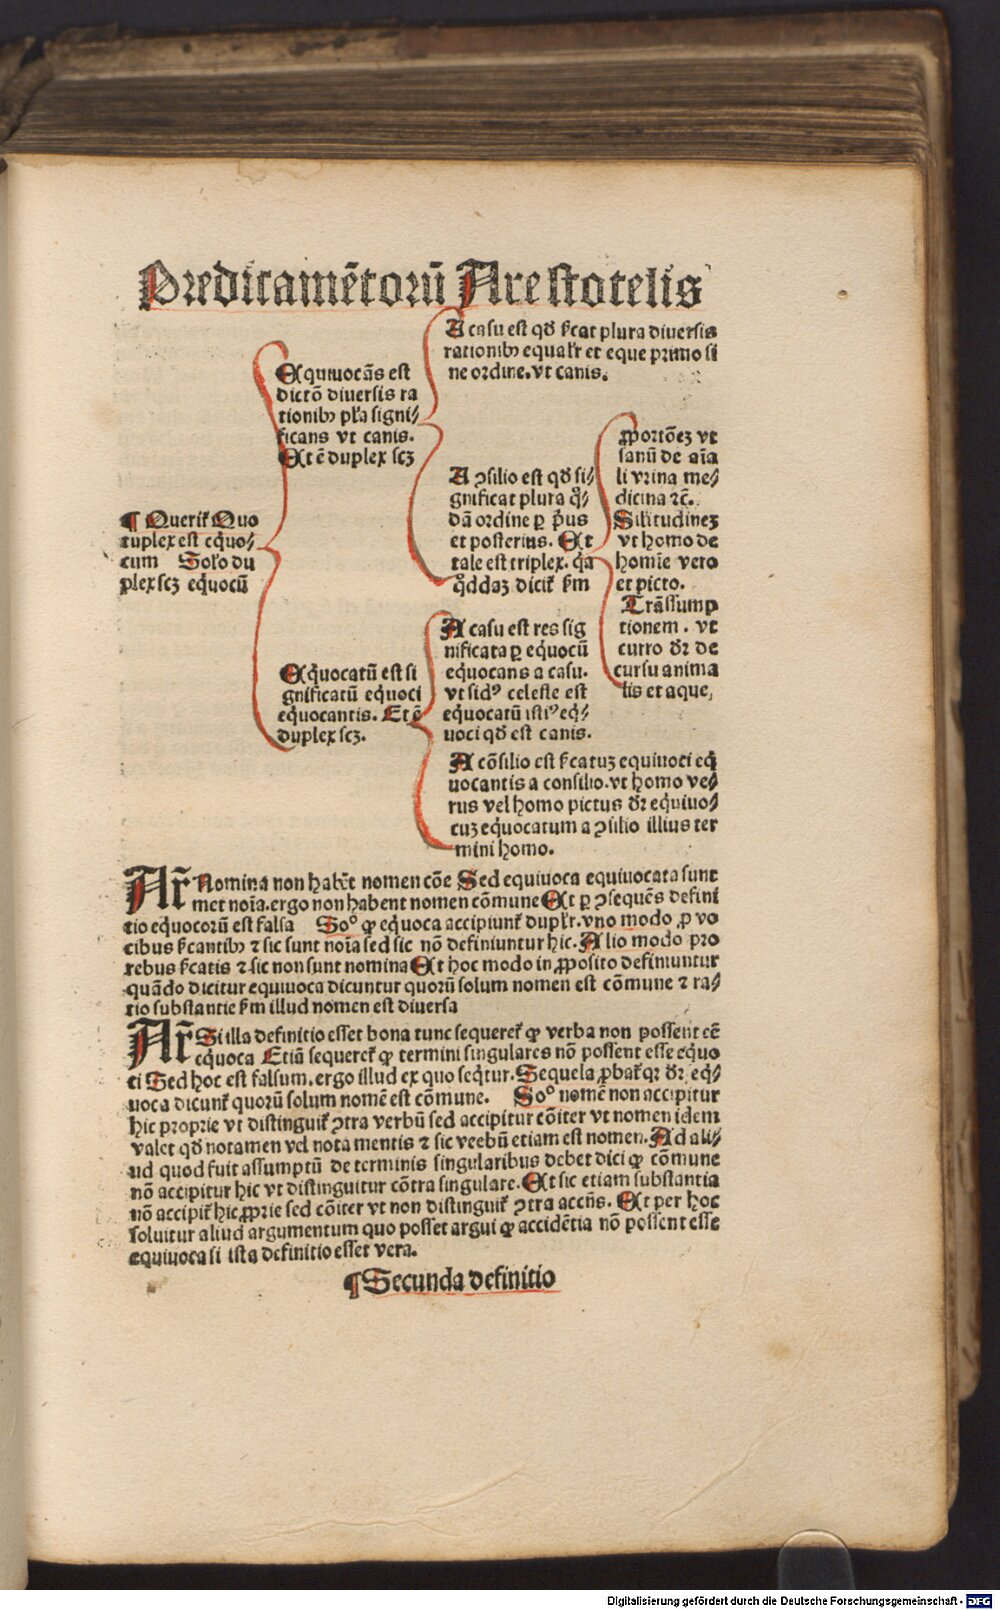 Predicamētorū Arestotelis
¶ Queriť Quo
tuplex est eq̇uo⸗
cum Solꝰo du
plex scꝫ eq̇uocū
Eq̇uiuocās est
dictō diuersis ra
tionibꝰ pľa signi⸗
ficans vt canis.
Et ē duplex scꝫ
A casu est qď ſťcat plura diuersis
rationibꝰ equaľr et eque primo si
ne ordine. vt canis.
A ꝯsilio est qď si⸗
gnificat plura q̊⸗
dā ordine ꝑ p̄us
et posterius. Et
tale est triplex. q̇a
q̊ddaꝫ diciť ẜm
ꝓportōeꝫ vt
sanū de aīa
li vrina me⸗
dicina ⁊c̄.
Silitudineꝫ
vt homo de
homīe vero
et picto.
Trāssump
tionem . vt
curro ďr de
cursu anima
lis et aque,
Eq̇uocatū est si
gnificatū eq̇uoci
eq̇uocantis. Et ē
duplex scꝫ.
A casu est res sig
nificata ꝑ eq̇uocū
eq̇uocans a casu.
vt sidꝰ celeste est
eq̇uocatū istiꝰ eq̇⸗
uoci qď est canis.
A cōsilio est ſťcatuꝫ equiuoci eq̇
uocantis a consilio. vt homo ve⸗
rus vel homo pictus ďr eq̇uiuo⸗
cuꝫ eq̇uocatum a ꝯsilio illius ter
mini homo.
Ar̄ Nomina non habēt nomen cōe Sed equiuoca equiuocata sunt
met noīa. ergo non habent nomen cōmune Et ꝑ ꝯsequēs defini
tio eq̇uocorū est falsa Soꝰ ꝙ eq̇uoca accipiunť dupľr. vno modo ꝓ vo
cibus ſťcantibꝰ ⁊ sic sunt noīa sed sic nō definiuntur hic. Alio modo pro
rebus ſťcatis ⁊ sic non sunt nomina Et hoc modo in ꝓposito definiuntur
quādo dicitur equiuoca dicuntur quorū solum nomen est cōmune ⁊ ra⸗
tio substantie ẜm illud nomen est diuersa
Ar̄ Si illa definitio esset bona tunc sequereť ꝙ verba non possent eē
eq̇uoca Etiā sequereť ꝙ termini singulares nō possent esse eq̇uo
ci Sed hoc est falsum. ergo illud ex quo seq̇tur. Sequela ꝓbať qꝛ ďr eq̇⸗
uoca dicunť quorū solum nomē est cōmune. Soꝰ nomē non accipitur
hic proprie vt distinguiť ꝯtra verbū sed accipitur cōiter vt nomen idem
valet qď notamen vel nota mentis ⁊ sic veebū etiam est nomen. Ad ali⸗
ud quod fuit assumptū de terminis singularibus debet dici ꝙ cōmune
nō accipitur hic vt distinguitur cōtra singulare. Et sic etiam substantia
nō accipiť hic ꝓprie sed cōiter vt non distinguiť ꝯtra accn̄s. Et per hoc
soluitur aliud argumentum quo posset argui ꝙ accidētia nō possent esse
equiuoca si ista definitio esset vera.
¶ Secunda definitio
Digitalisierung gefördert durch die Deutsche Forschungsgemeinschaft - DFG